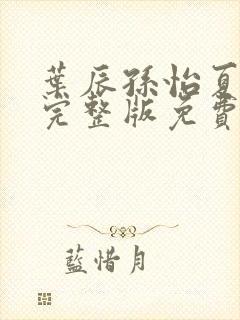 葉辰孫怡夏
完整版免費
藍惜月